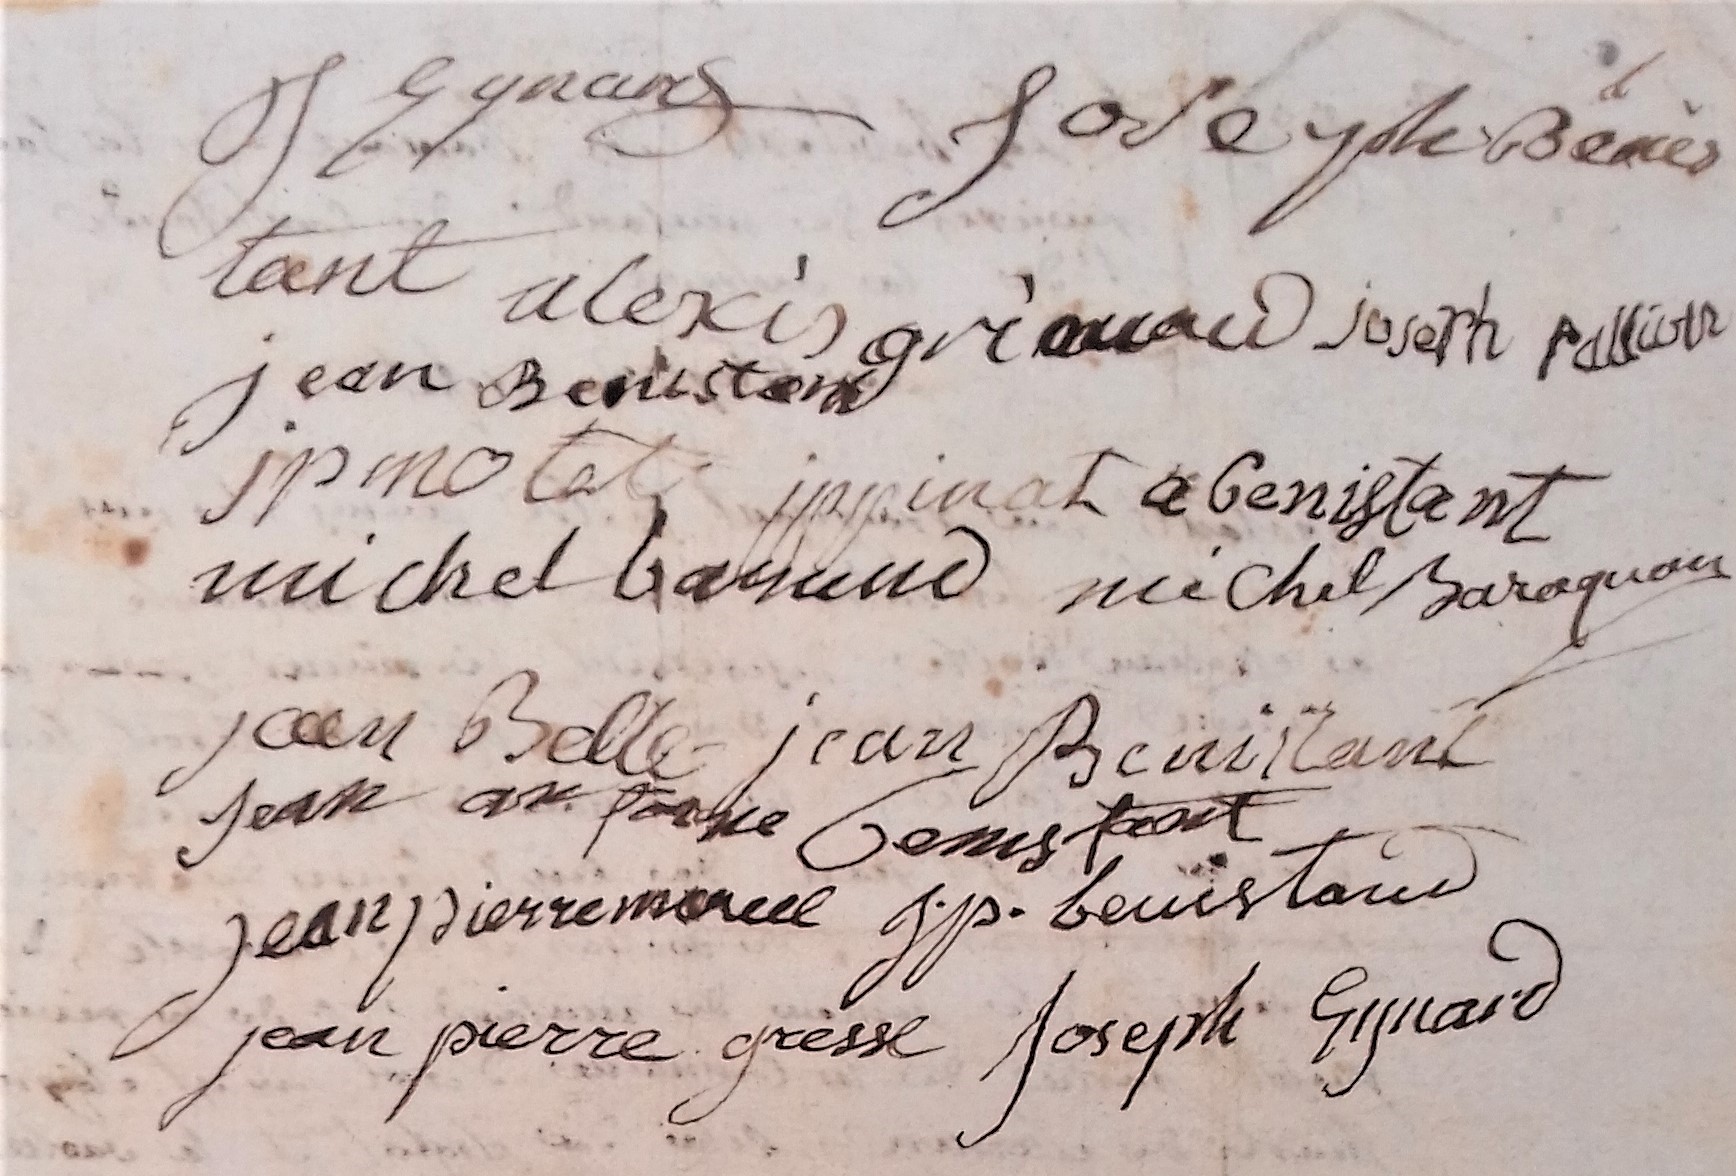 J Eynard Joseyph Benis
tant alexis grimaud joseph
jean Benistant
jp motet jp pinat a benistant
michel michel Baraquan
jean Belle jean Benistant
jean antoine benistant
jean pierre j.p. benistand
jean pierre gresse Joseph Eynard